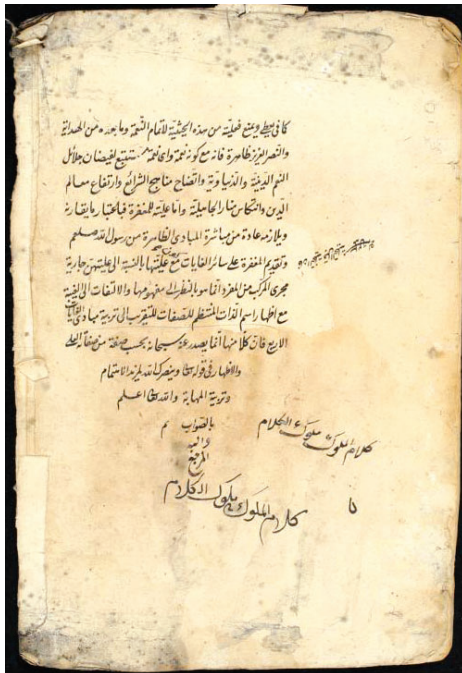 كافي يعطى ويمنع فعليّة من هذه الحيثيّة لاتمام النّعمة وما بعده من الهداية
والنصر العزيز ظاهرة فانه مع كونه نعمة واى نعمة مستتبع لفيضان جلائل
النعم الدينيّة والدّنياويّة واتضاح مناهج الشرائع وارتفاع معالم
الدّين وانتكاس منار الجاهليّة وامّا علّيته للمغفرة فباعتبار ما يقارنه
ويلازمه عادة من مباشرة المبادى الظاهرة من رسول الله صلعم
وتقديم المغفرة على سائر الغايات مع علّيتها بالنسبة الى عليتهنّ جارية
مجرى المركب من المفرد انّما هو بالنظر الى مفهومها والالتفات الى الغيبة
مع اظهار اسم الذات المنتظم للصّفات للتقريب الى تربية مبادى الغايات
الاربع فانّ كلا منها انّما يصدر عنه سبحانه بحسب صفة من صفاته العلى
والاظهار فى قوله تعالى وينصرك الله لمزيد الاهتمام
وتربية المهابة والله تعالى اعلم
بالصّواب تم
واليه
المرجع
كلام الملوك ملوك الكلام
كلام الملوك ملوك الكلام